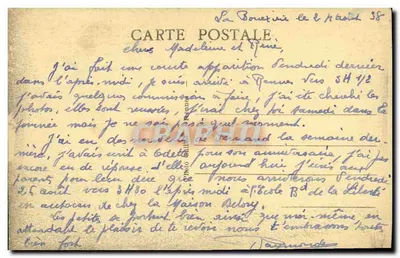 La Bouëxière le 21 août 38
CARTE POSTALE
chers Madeleine et René,
J'ai fait une courte apparition vendredi dernier
dans l'après-midi, je suis arrivée à Rennes vers 3H 1/2
j'avais quelques commissions à faire, j'ai été chercher les
photos, elles sont réussies, j'irai chez toi samedi dans la
journée mais je ne sais pas à quel moment.
J'ai eu des nouvelles de la semaine der-
nière, j'avais écrit à pour son anniversaire, j'ai pas
encore eu de réponse d'elle, aujourd'hui j'écris aux
parents pour leur dire que nous arriverons vendredi
26 août vers 3H30 l'après-midi à l'école Bd de la Liberté
en autocar de chez la Maison
Les petits se portent bien ainsi que moi-même en
attendant le plaisir de te revoir nous t'embrassons toutes
bien fort
Raymonde
CARTOPHIL